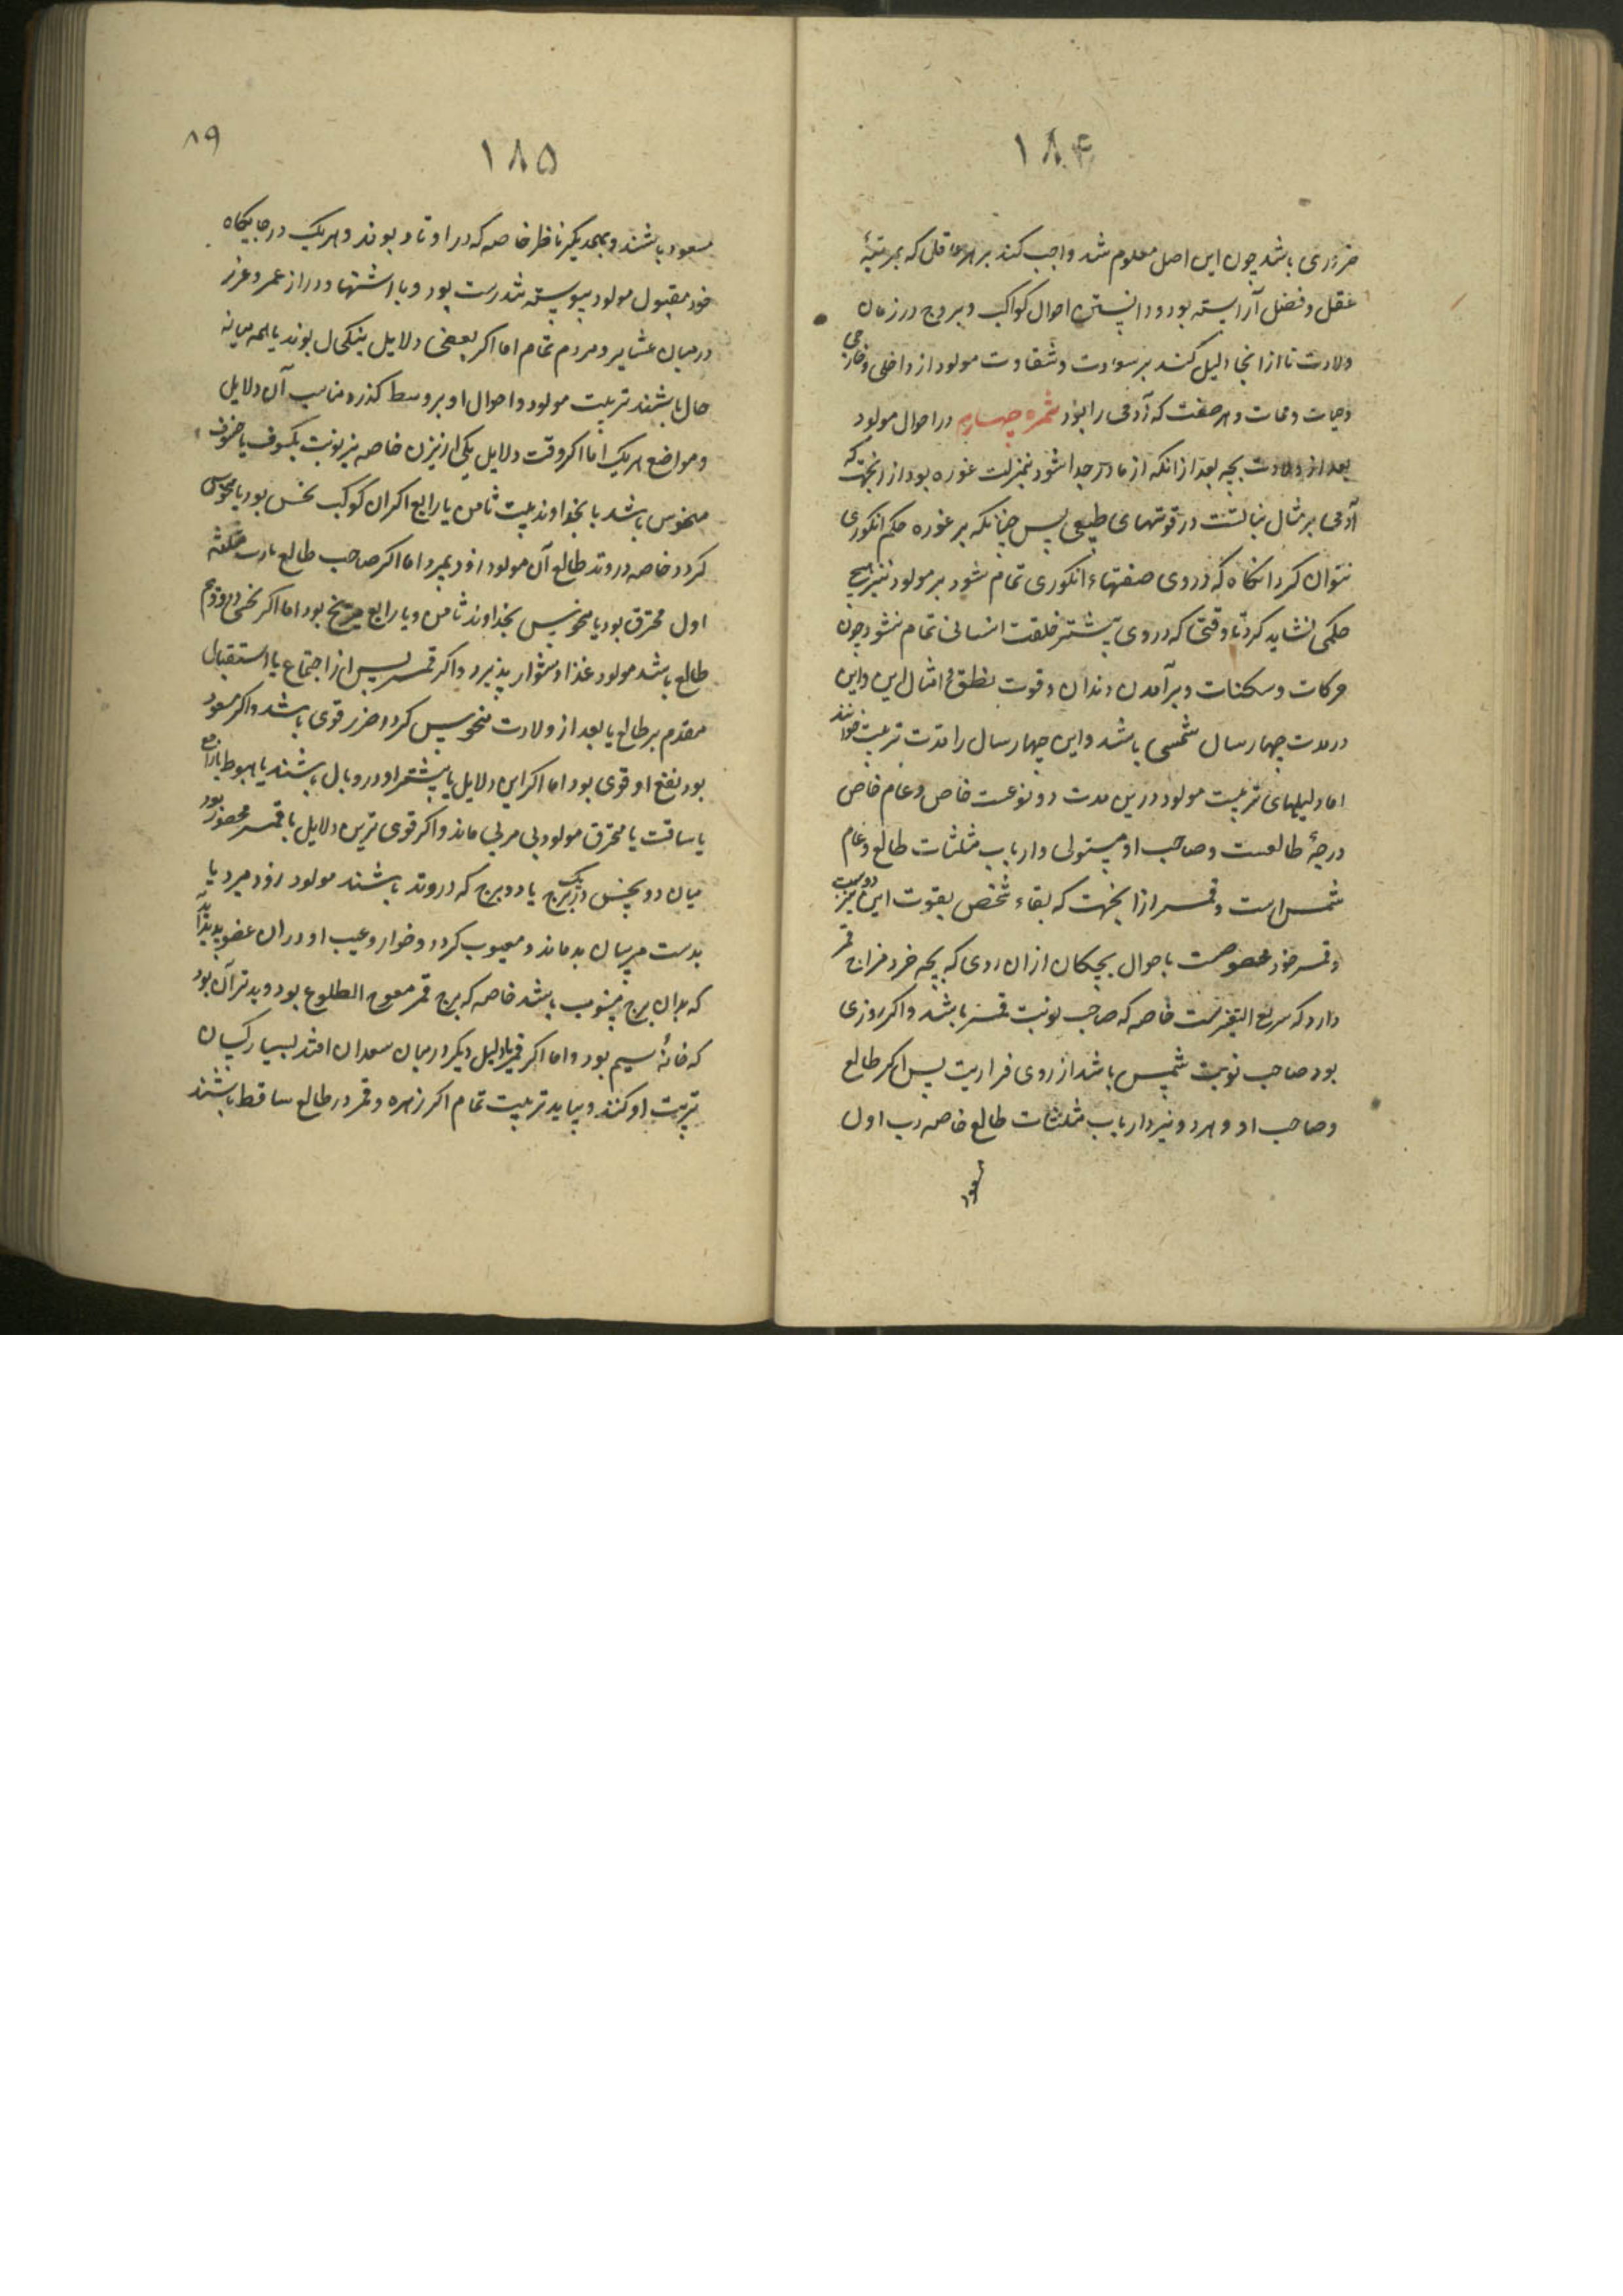 ۱۸۴
ضروری باشد چون این اصل معلوم شد واجب کند بر هر عاقلی که بمرتبهٔ
عقل و فضل آراسته بود و دانستن احوال کواکب و بروج در زمان
ولادت تا از انجا دلیل کند بر سعادت و شقاوت مولود از داخلی و خارجی
و حیات و ممات و هر صفت که آدمی را بود ثمره چهارم در احوال مولود
بعد از ولادت بچه بعد از انکه از مادر جدا شود بمنزلت غوره بود از انجهت که
آدمی بر مثال نباتست در قوتهای طبیعی پس چنانکه بر غوره حکم انکوری
نتوان کرد انکاه که دروی صفتهاء انکوری تمام شود بر مولود نیز هیچ
حکمی نشاید کرد تا وقتی که در وی بیشتر خلقت انسانی تمام نشود چون
حرکات و سکنات و برآمدن دندان و قوت نطق و امثال این و این
در مدت چهار سال شمسی باشد و این چهار سال را مدت تربیت خوانند
اما دلیلهای تربیت مولود درین مدت دو نوعست خاص و عام خاص
درجهٔ طالعست و صاحب او و مستولی و ارباب مثلثات طالع و عام
شمس است و قمر از انجهت که بقاء شخص بقوت این دو نیر است
و قمر خود مخصوصست باحوال بچکان از ان روی که بچه خرد مزاج قمر
دارد که سریع التغیرست خاصه که صاحب نوبت قمر باشد و اکر روزی
بود صاحب نوبت شمس باشد از روی قراریت پس اکر طالع
و صاحب او و هر دو نیر و ارباب مثلثات طالع خاصه رب اول
مسعود
۱۸۵
۸۹
مسعود باشند و بهمدیکر ناظر خاصه که در اوتاد بوند و هر یک در جایکاه
خود مقبول مولود پیوسته تندرست بود و با اشتها و دراز عمر و عزیز
در میان عشایر و مردم تمام اما اکر بعضی دلایل نیکحال بوند یا همه میانه
حال باشند تربیت مولود و احوال او بر وسط کذرد مناسب آن دلایل
و مواضع هر یک اما اکر وقت دلایل یکی از نیرین خاصه نیر نوبت بکسوف یا خسوف
منحوس باشد یا بخداوند بیت ثامن یا رابع اکر ان کوکب نحس بود یا منحوس
کردد خاصه در وتد طالع آن مولود زود بمیرد اما اکر صاحب طالع یا رب مثلثه
اول محترق بود یا منحوس بخداوند ثامن و یا رابع مریخ بود اما اکر نحسی در دوم
طالع باشد مولود غذا دشوار پذیرد و اکر قمر پس از اجتماع یا استقبال
مقدم بر طالع یا بعد از ولادت منحوس کردد ضرر قوی باشد و اکر مسعود
بود نفع او قوی بود اما اکر این دلایل یا بیشتر او در وبال باشند یا هبوط یا راجع
یا ساقط یا محترق مولود بی مربی ماند و اکر قوی ترین دلایل یا قمر محصور بود
میان دو نحس در یک برج یا دو برج که در وتد باشند مولود زود میرد یا
بدست مپرسان بد ماند و معیوب کردد و خوار و عیب او در ان عضو پدید آید
که بدان برج منسوب باشد خاصه که برج قمر معوج الطلوع بود و بدتر آن بود
که خانهٔ سیم بود و اما اکر قمر یا دلیل دیکر در میان سعدان افتد بسیار کسان
تربیت او کنند و بیابد تربیت تمام اکر زهره و قمر در طالع ساقط باشند